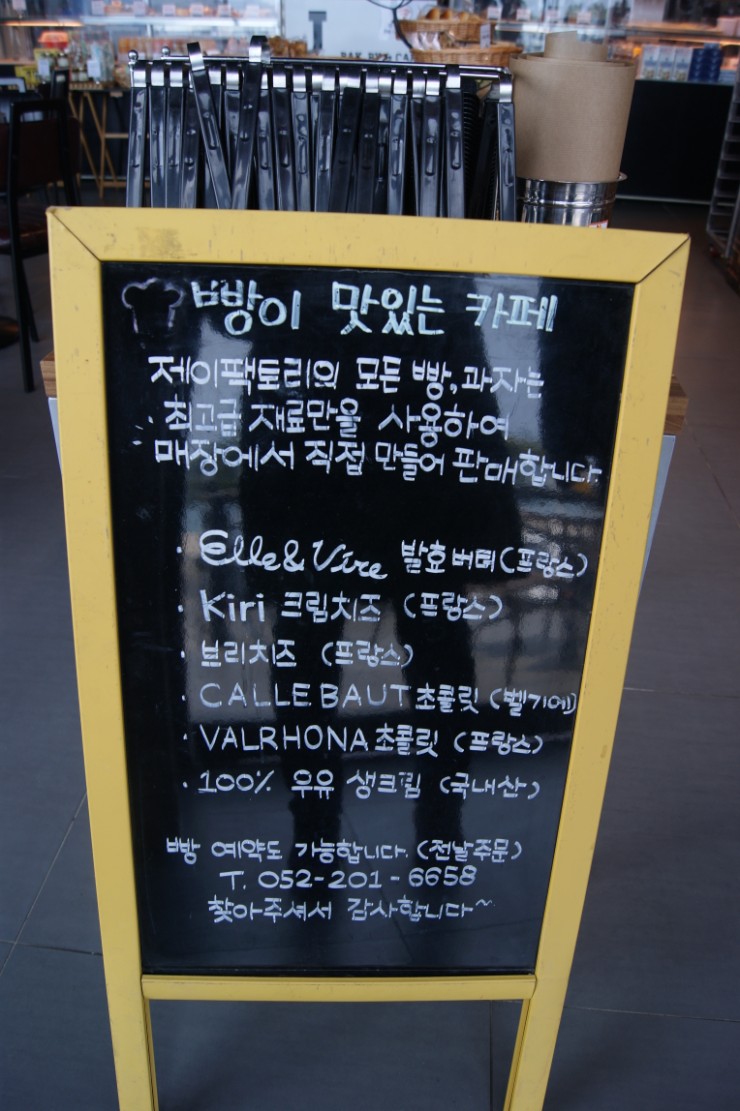 빵이 맛있는 카페
제이팩토리의 모든 빵,과자는
최고급 재료만을 사용하여
매장에서 직접 만들어 판매합니다.
· Elle&Vire 발효버터(프랑스)
· Kiri 크림치즈 (프랑스)
· 브리치즈 (프랑스)
· CALLEBAUT초콜릿 (벨기에)
· VALRHONA초콜릿 (프랑스)
· 100% 우유 생크림 (국내산)
빵 예약도 가능합니다. (전날주문)
T. 052-201-6658
찾아주셔서 감사합니다~